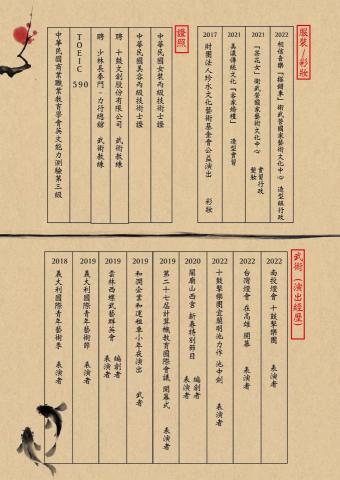 服裝/彩妝
2022 相信音樂「搖錢車」衛武營國家藝術文化中心 造型組行政
2021 「茶花女」衛武營國家藝術文化中心 實習行政 髮妝
2021 美濃傳統文化「客家婚禮」 造型實習
2017 財團法人珍水文化藝術基金會公益演出 彩妝
證照
中華民國女裝丙級技術士證
中華民國美容丙級技術士證
聘 十鼓文創股份有限公司 武術教練
聘 少林長拳門-力行總館 武術教練
TOEIC 590
中華民國商業職業教育學會英文能力測驗第三級
武術(演出經歷)
2022 南投燈會 十鼓擊樂團 表演者
2022 台灣燈會 在高雄 開幕 表演者
2022 十鼓擊樂團宜蘭明池力作 池中劍 表演者
2020 關廟山西宮 新春特別節目 編創者 表演者
2019 第二十七屆計算機教育國際會議 開幕式 表演者
2019 和潤企業和運租車小年夜演出 武者
2019 雲林西螺武藝群英會 編創者 表演者
2019 義大利國際青年藝術節 表演者
2018 義大利國際青年藝術季 表演者